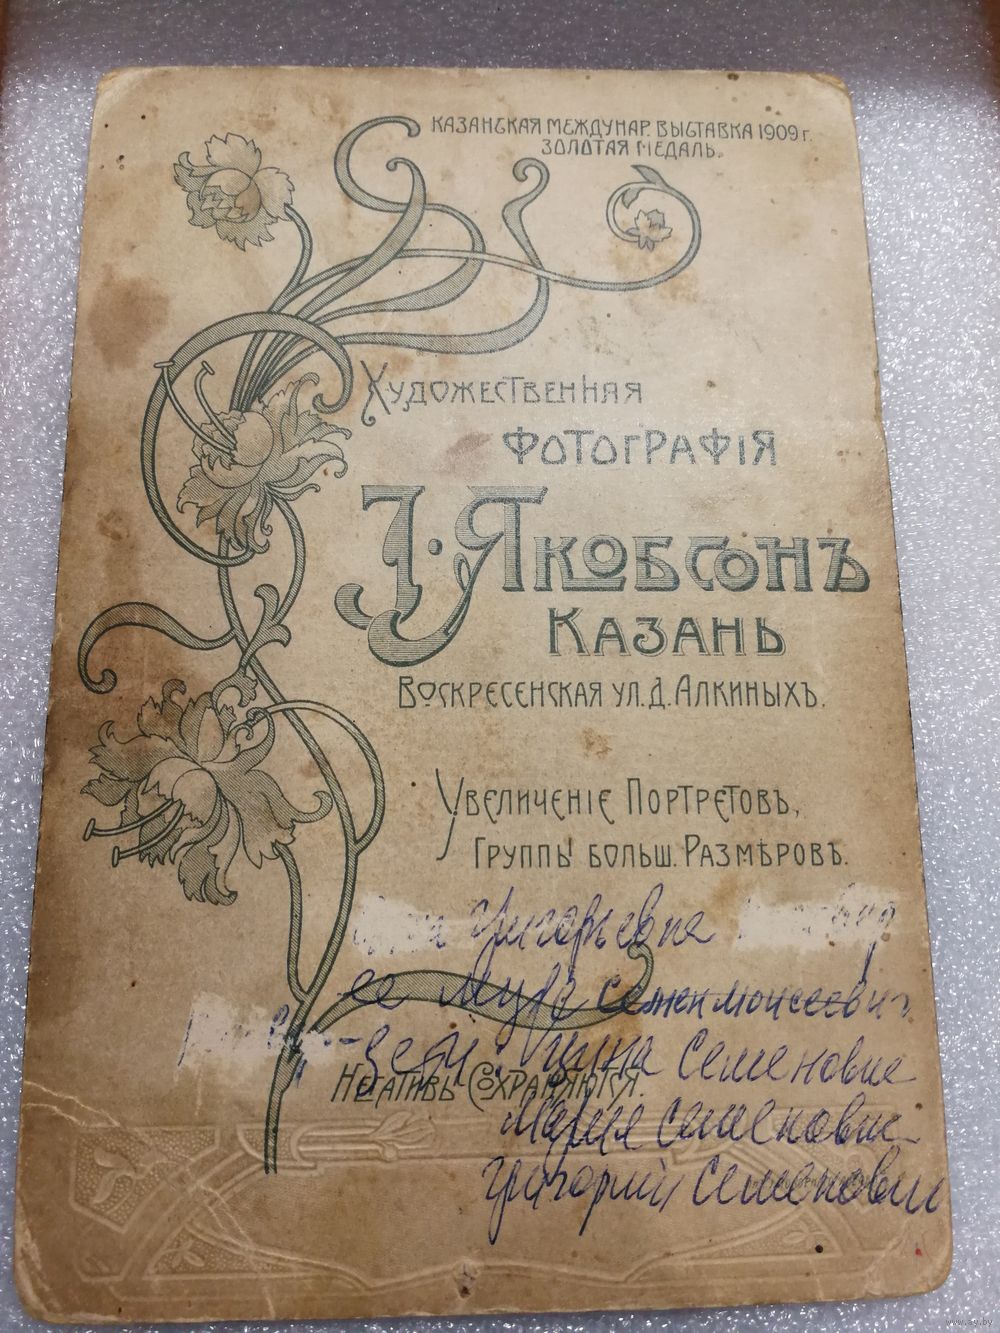 КАЗАНСКАЯ МЕЖДУНАР. ВЫСТАВКА 1909 г.
ЗОЛОТАЯ МЕДАЛЬ.
ХУДОЖЕСТВЕННАЯ
ФОТОГРАФІЯ
І. ЯКОБСОНЪ
КАЗАНЬ
ВОСКРЕСЕНСКАЯ УЛ. Д. АЛКИНЫХЪ.
УВЕЛИЧЕНІЕ ПОРТРЕТОВЪ,
ГРУППЫ БОЛЬШ. РАЗМѢРОВЪ.
Григорьевна
ее муж Семен Моисеевич
дети: Цина Семеновна
НЕГАТИВЪ СОХРАНЯЮТСЯ.
Мария Семеновна
Григорий Семенович
www.ay.by